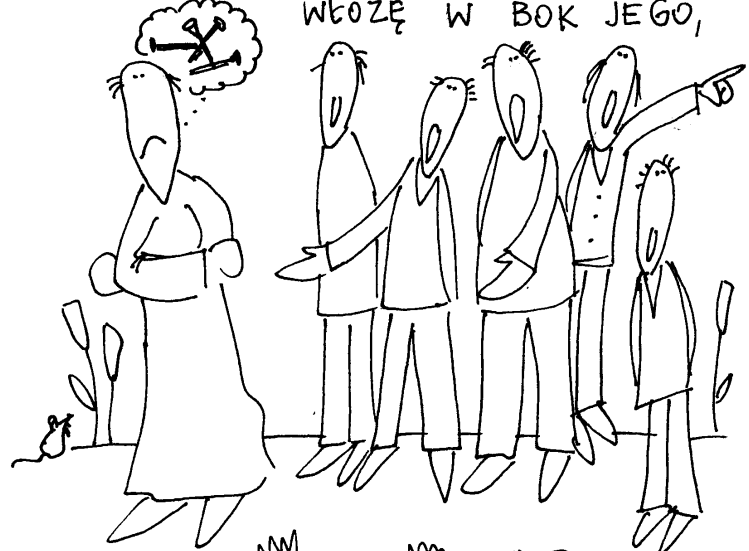 WŁOŻĘ W BOK JEGO,